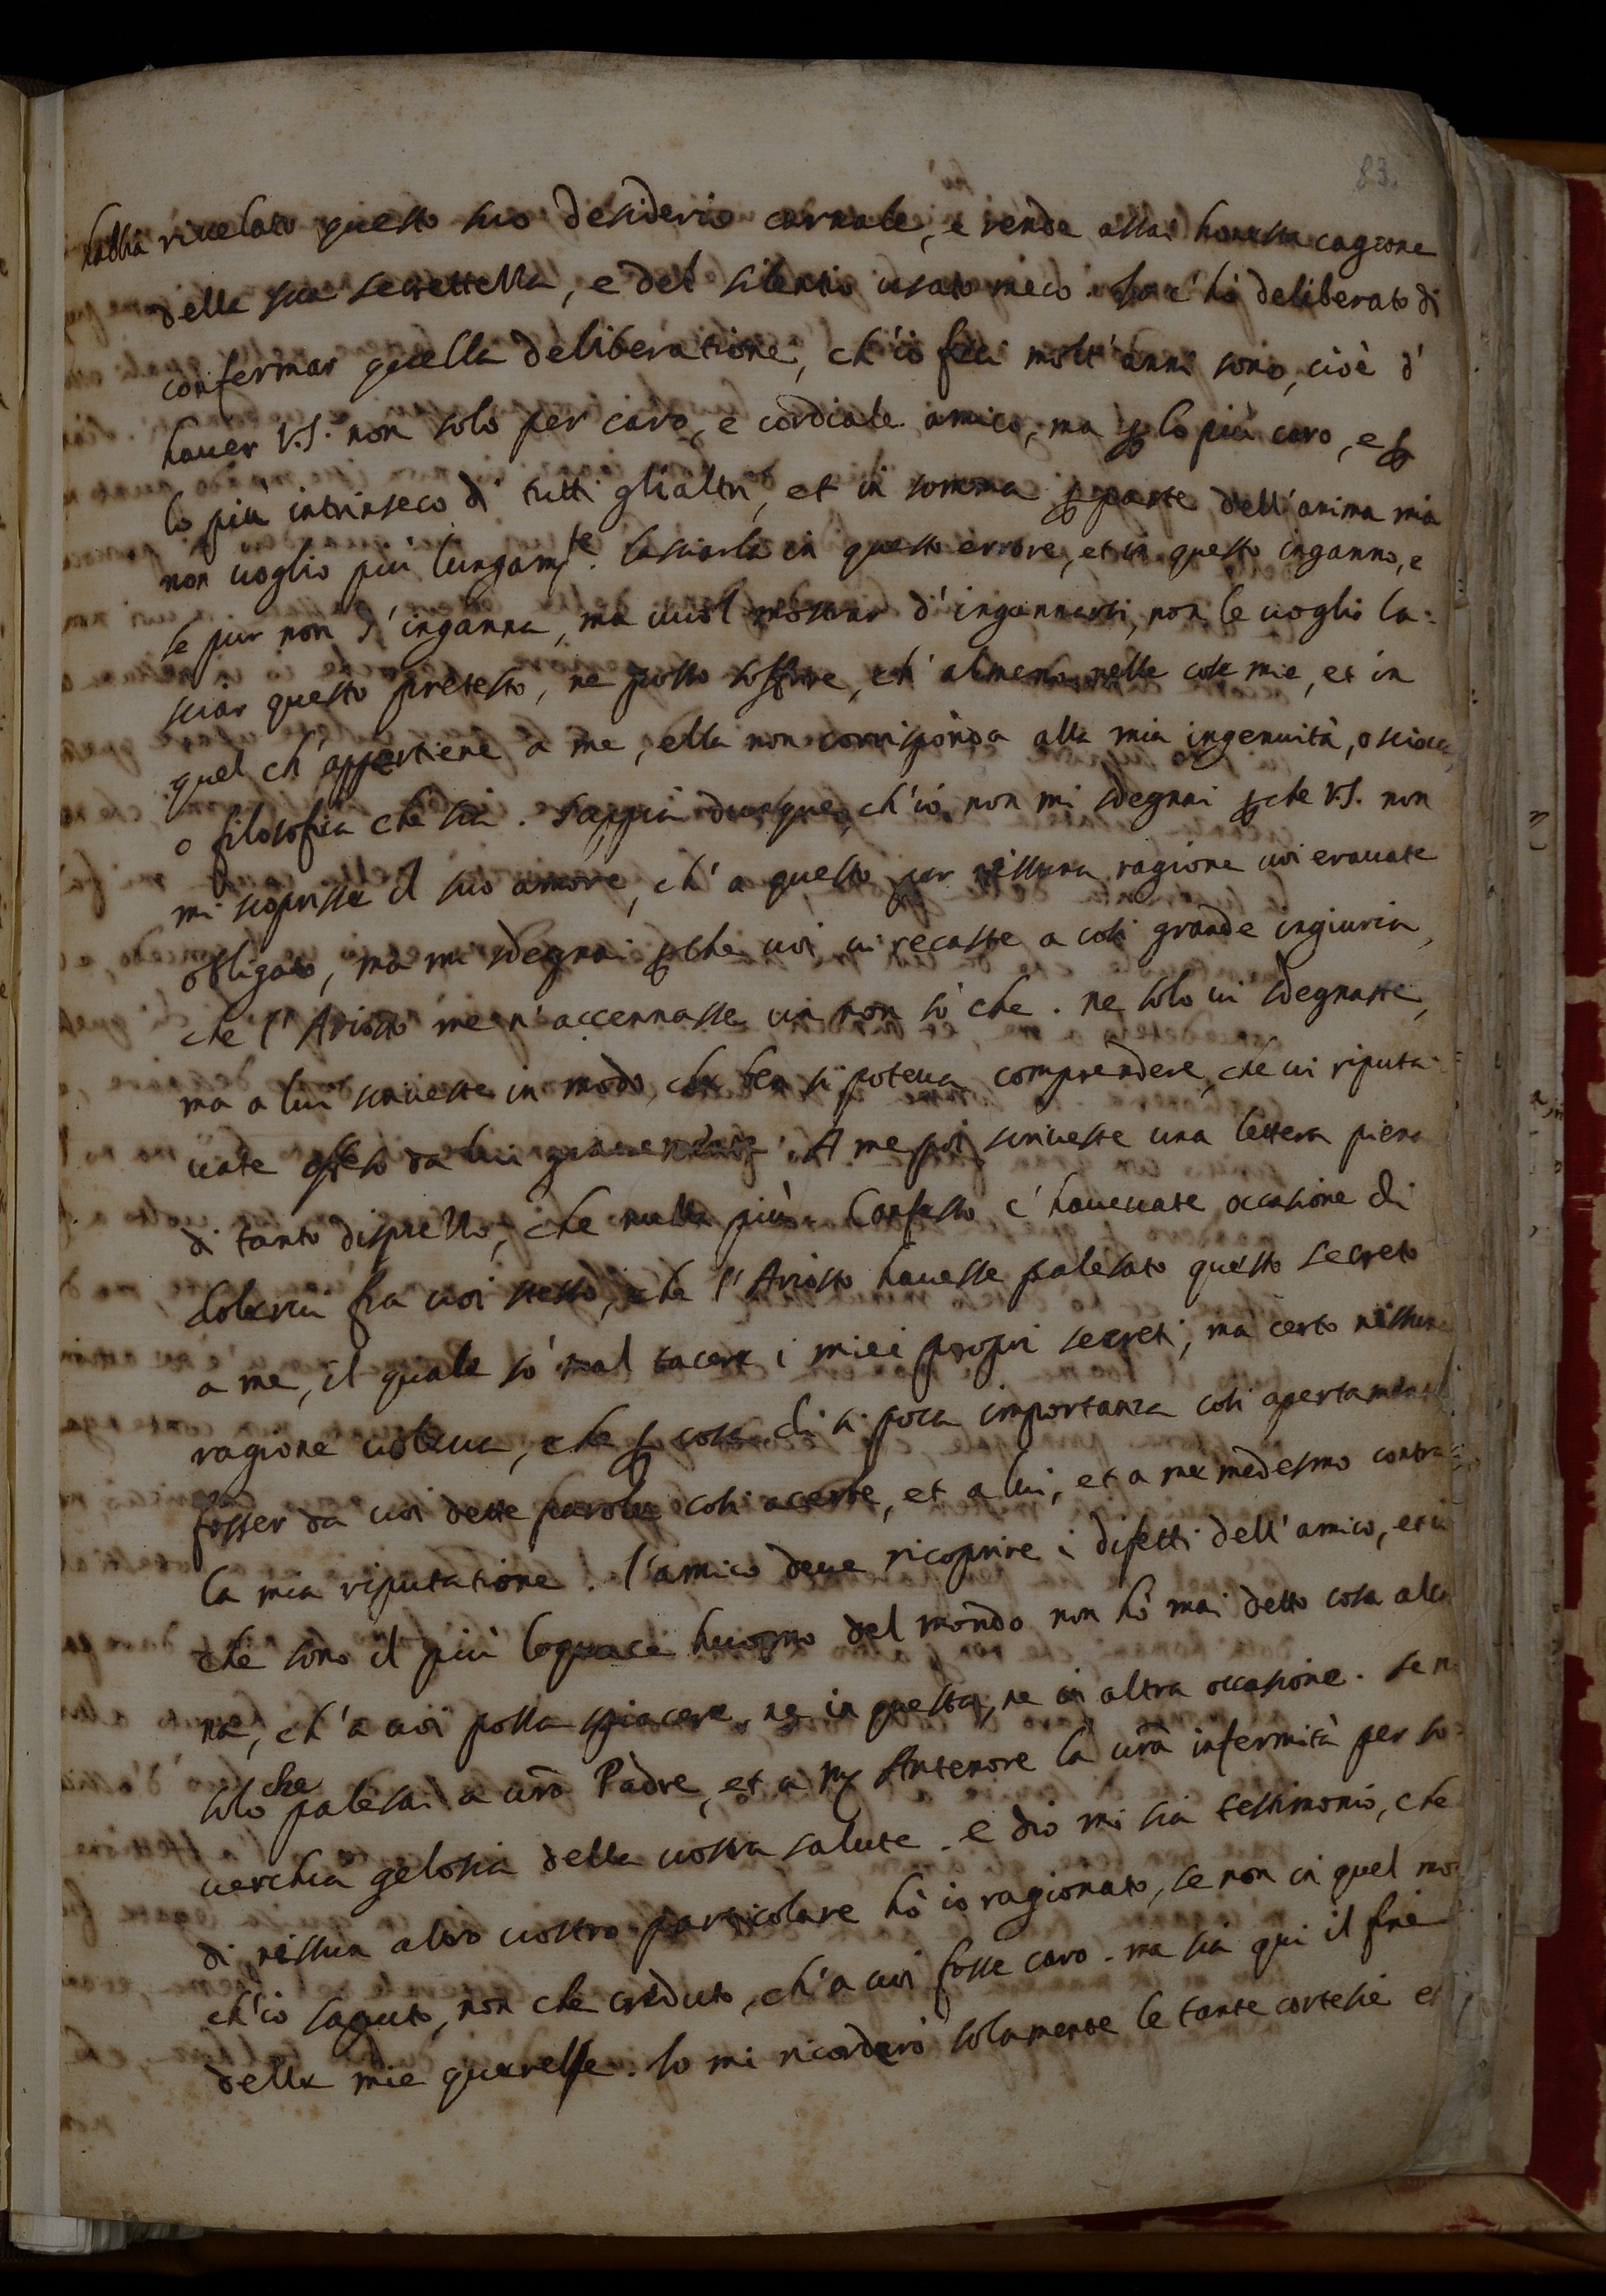 83.
habbia riuelato questo suo desiderio carnale, e rende assai honesta cagione
della sua secrettezza, e del silentio usato meco. Io c'hò deliberato di
confermar quella deliberatione, ch'io feci molt'anni sono, cioè d'
hauer V.S. non solo per caro, e cordiale amico, ma ꝑ lo più caro, e ꝑ
lo più intrinseco di tutti gli altri, et in somma ꝑ parte dell'anima mia
non uoglio più lungamte. lasciarla in questo errore, et in questo inganno, e
se pur non s'inganna, ma uuol mostrar d'ingannarsi, non le uoglio la-
sciar questo pretesto, ne posso soffrire, ch'almeno nelle cose mie, et in
quel ch'appertiene a me, ella non corrisponda alla mia ingenuità, o sciocca,
o filosofica che sia. Sappia dunque, ch'io non mi sdegnai ꝑche V.S. non
mi scoprisse il suo amore, ch'a questo per nissuna ragione uoi erauate
obligato, ma mi sdegnai ꝑche uoi ui recaste a così grande ingiuria,
che l'Ariosto me n'accennasse un non sò che. ne solo ui sdegnaste,
ma a lui scriueste in modo, che ben si poteua comprendere, che ui riputa-
uate offeso da lui grauemente. A me poi scriueste una lettera piena
di tanto disprezzo, che nulla più. Confesso c'haueuate occasione di
doleruì fra uoi stesso, che l'Ariosto hauesse palesato questo secreto
a me, il quale sò mal tacere i miei propri secreti, ma certo nissuna
ragione uoleua, che ꝑ cosa di sì poca importanza così apertamente
fosser da uoi dette parole così acerbe, et a lui, et a me medesmo contra
la mia riputatione. l'amico deue ricoprire i difetti dell'amico, et io
che sono il più loquace huomo del mondo non hò mai detto cosa alcu
na, ch'a uoi possa spiacere, ne in questa, ne in altra occasione. se n
solo che palesai a uro Padre, et a M. Antenore la ura infermità per so-
uerchia gelosia della uostra salute. e dio mi sia testimonio, che
di nissun altro uostro particolare hò io ragionato, se non in quel mo
ch'io saputo, non che creduto, ch'a uoi fosse caro. ma sia qui il fine
delle mie querelle. Io mi ricorderò solamente le tante cortesie et